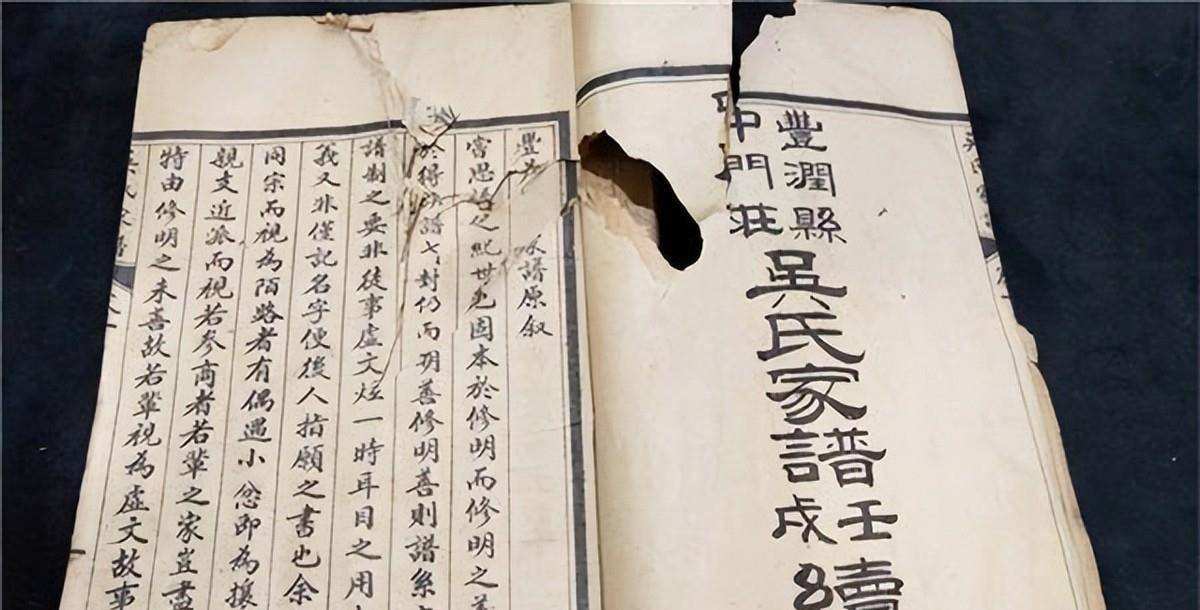 豐潤縣
中門莊
吳氏家譜
壬戌
豐
譜原叙
嘗思譜之紀世也固本於修明而修明之善
於得 譜 封仍而明善修明善則譜系
譜制之要非徒事虛文炫一時耳目之用
義又非僅記名字便後人指願之書也余
同宗而視為陌路者有偶遇小忿即為攘
親支近派而視若參商者若輩之家豈盡
特由修明之未善故若輩視為虛文故事
吳氏家譜